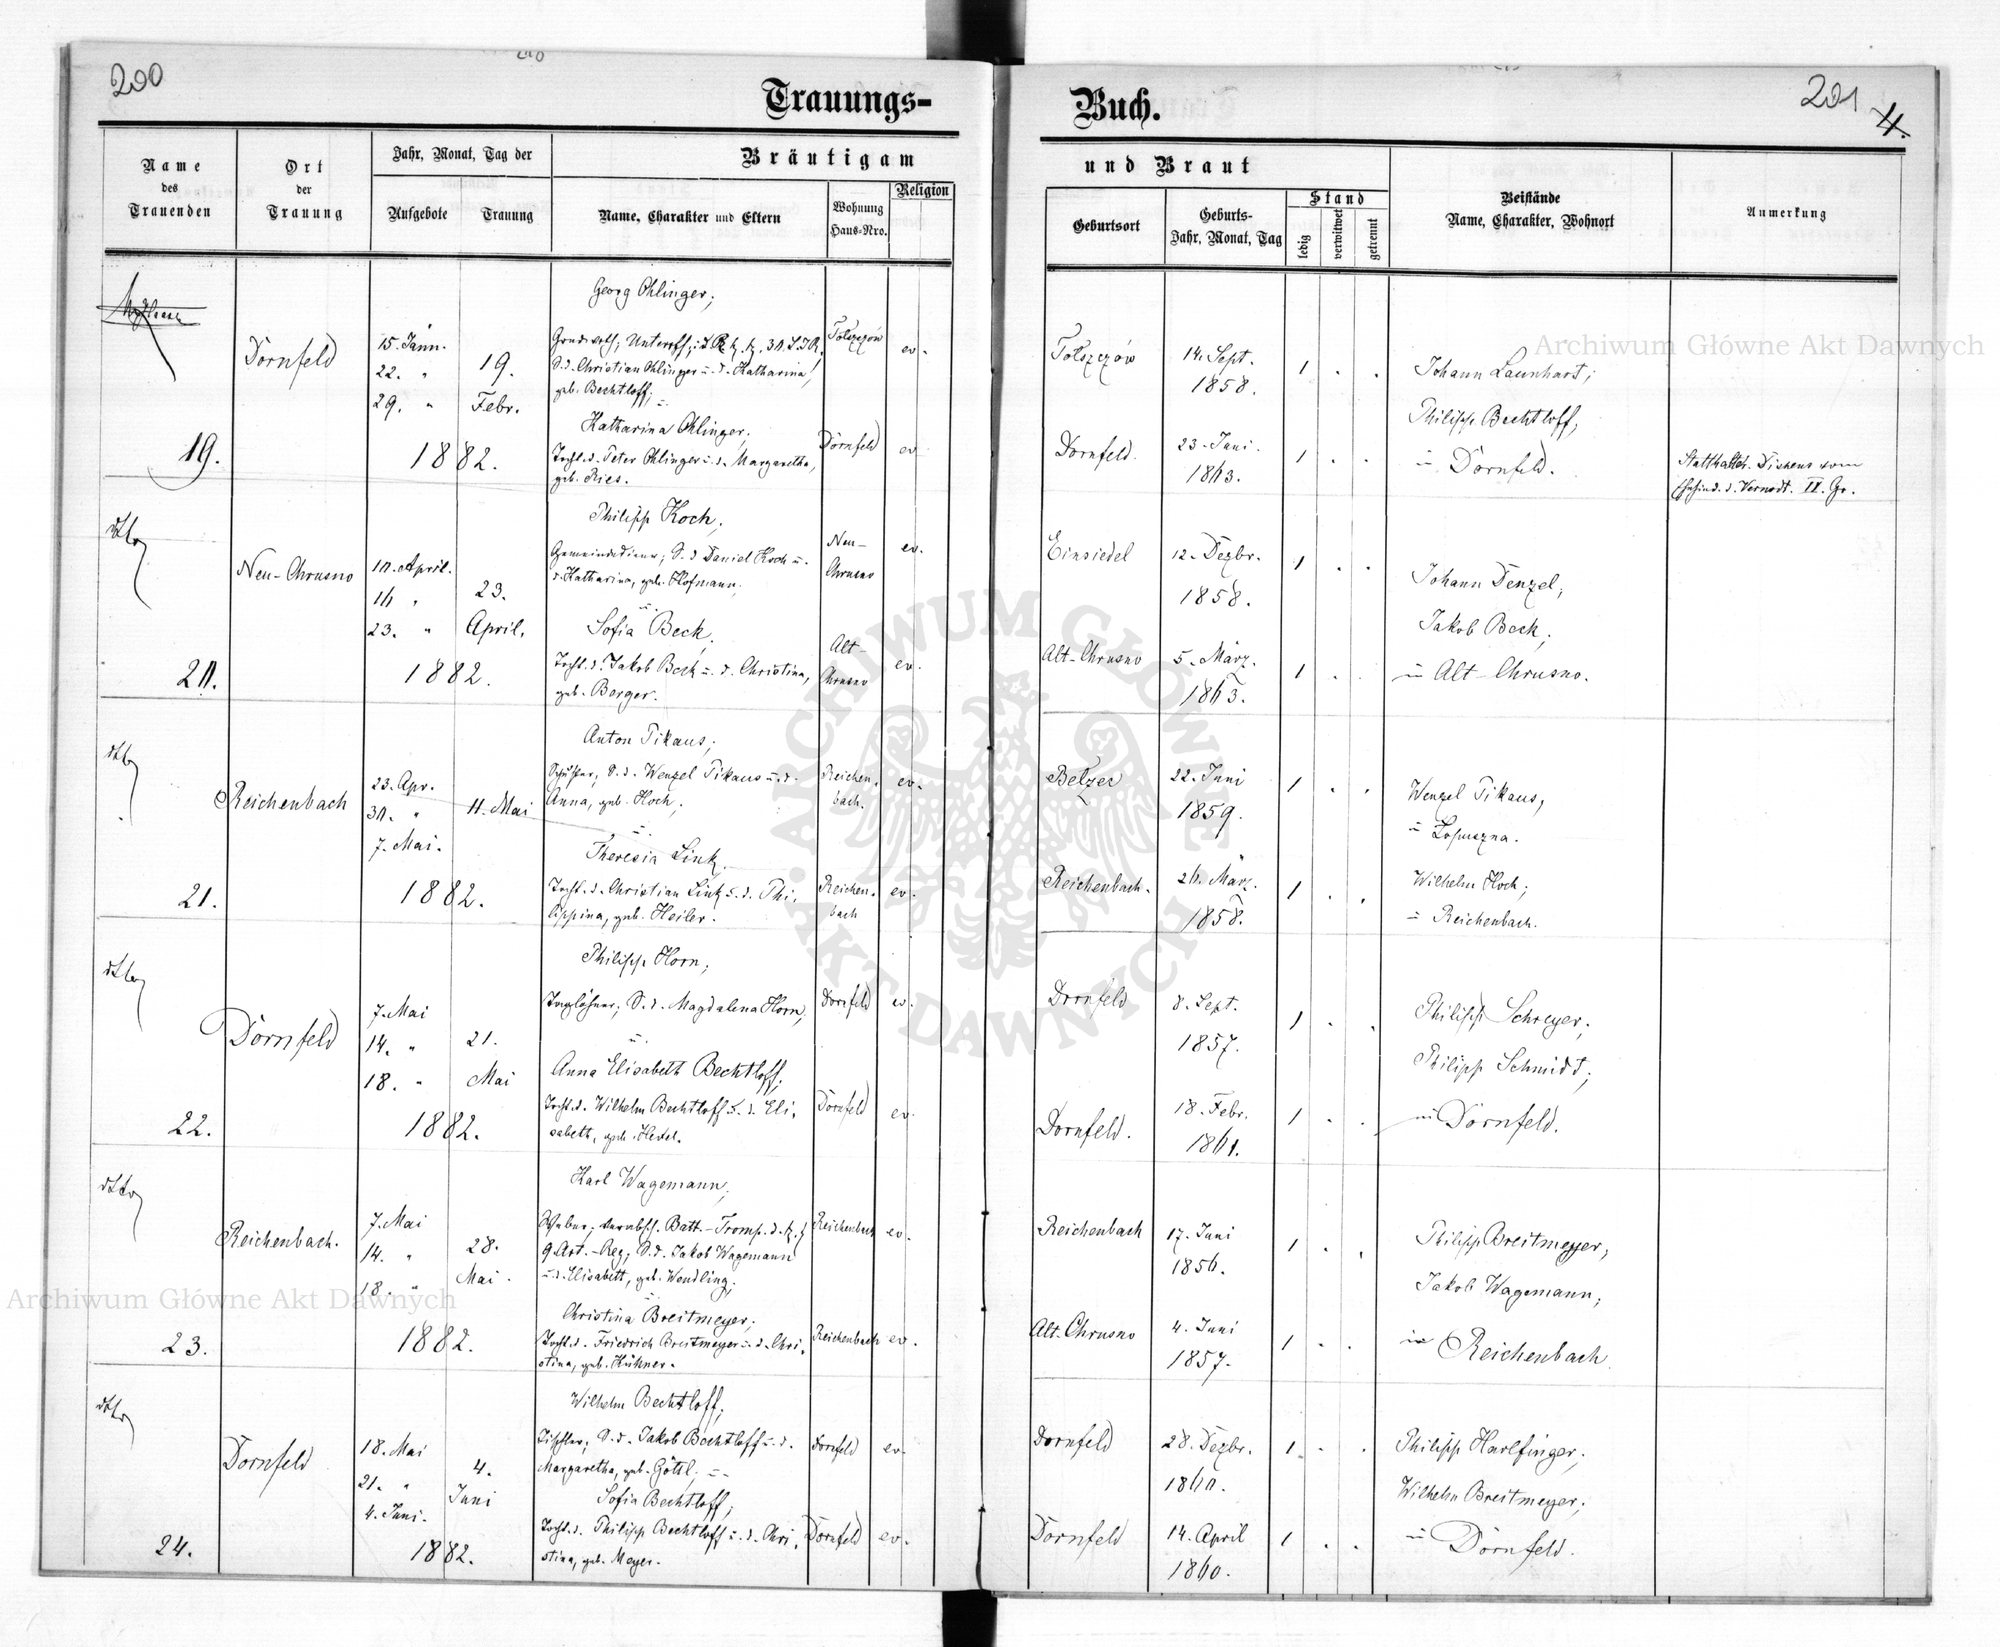 200
Trauungs-
Name
des
Trauenden
Ort
der
Trauung
Jahr, Monat, Tag der
Aufgebote
Trauung
Bräutigam
Name, Charakter und Eltern
Wohnung
Haus-Nro.
Religion
Georg Ohlinger;
Dornfeld
15. Jänn.
22. "
29. "
19.
Febr.
1882.
S. d. Christian Ohlinger u. d. Katharina,
geb. Bechtloff;
Tolszczów
ev.
Katharina Ohlinger;
Tocht. d. Peter Ohlinger u. d. Margaretha,
geb. Ries.
Dornfeld
ev.
19.
Philipp Koch,
dto
Neu-Chrusno
10. April.
16 "
23. "
23.
April.
1882.
Gemeindediener; S. d. Daniel Koch u.
d. Katharina, geb. Hofmann;
u.
Neu-
Chrusno
ev.
Sofia Beck,
Tocht. d. Jakob Beck u. d. Christina,
geb. Berger.
Alt-
Chrusno
ev.
20.
Anton Pikaus;
dto
Reichenbach
23. Apr.
30. "
7. Mai.
11. Mai
1882.
Schuster, S. d. Wenzel Pikaus u. d.
Anna, geb. Hoch;
u.
Reichen-
bach.
ev.
Theresia Link,
Tocht. d. Christian Link u. d. Phi-
lippina, geb. Heiler.
Reichen-
bach
ev.
21.
Philipp Horn;
dto
Dornfeld
7. Mai
14. "
18. "
21.
Mai
1882.
Taglöhner; S. d. Magdalena Horn,
u.
Dornfeld
ev.
Anna Elisabeth Bechtloff;
Tocht. d. Wilhelm Bechtloff u. d. Eli-
sabeth, geb. Hexel.
Dornfeld
ev.
22.
Karl Wagemann,
dto
Reichenbach.
7. Mai
14. "
18. "
28.
Mai.
1882.
Weber; verabsch. Batt.-Tromp. d. k. k.
9. Art.-Reg; S. d. Jakob Wagemann
u. d. Elisabeth, geb. Wendling;
Reichenbach
ev.
Christina Breitmeyer;
Tocht. d. Friedrich Breitmeyer u. d. Chri-
stina, geb. Kühner.
Reichenbach
ev.
23.
Wilhelm Bechtloff;
dto
Dornfeld
18. Mai
21. "
4. Juni.
4.
Juni
1882.
Tischler; S. d. Jakob Bechtloff u. d.
Margaretha, geb. Göttl; u.
Dornfeld
ev.
Sofia Bechtloff;
Tocht. d. Philipp Bechtloff u. d. Chri-
stina, geb. Meyer.
Dornfeld
ev.
24.
201
4.
Buch.
und Braut
Geburtsort
Geburts-
Jahr, Monat, Tag
Stand
ledig
verwitwet
getrennt
Beistände
Name, Charakter, Wohnort
Anmerkung
Tolszczów
14. Sept.
1858.
1 . .
Johann Launhart;
Philipp Bechtloff,
in Dornfeld.
Dornfeld.
23. Juni.
1863.
1 . .
Einsiedel
12. Dezbr.
1858.
1 . .
Johann Denzel,
Jakob Beck,
in Alt-Chrusno.
Alt-Chrusno
5. März.
1863.
1 . .
Belzec
22. Juni
1859.
1 . .
Wenzel Pikaus,
in Lopuszna.
Reichenbach.
26. März.
1858.
1 . .
Wilhelm Hoch;
in Reichenbach.
Dornfeld
8. Sept.
1857.
1 . .
Philipp Schreyer,
Philipp Schmidt,
in Dornfeld.
Dornfeld.
18. Febr.
1861.
1 . .
Reichenbach
17. Juni
1856.
1 . .
Philipp Breitmeyer,
Jakob Wagemann;
in Reichenbach.
Alt-Chrusno
4. Juni
1857.
1 . .
Dornfeld
28. Dezbr.
1860.
1 . .
Philipp Harlfinger;
Wilhelm Breitmeyer;
in Dornfeld.
Dornfeld
14. April
1860.
1 . .
Archiwum Główne Akt Dawnych
Archiwum Główne Akt Dawnych
ARCHIWUM GŁÓWNE AKT DAWNYCH